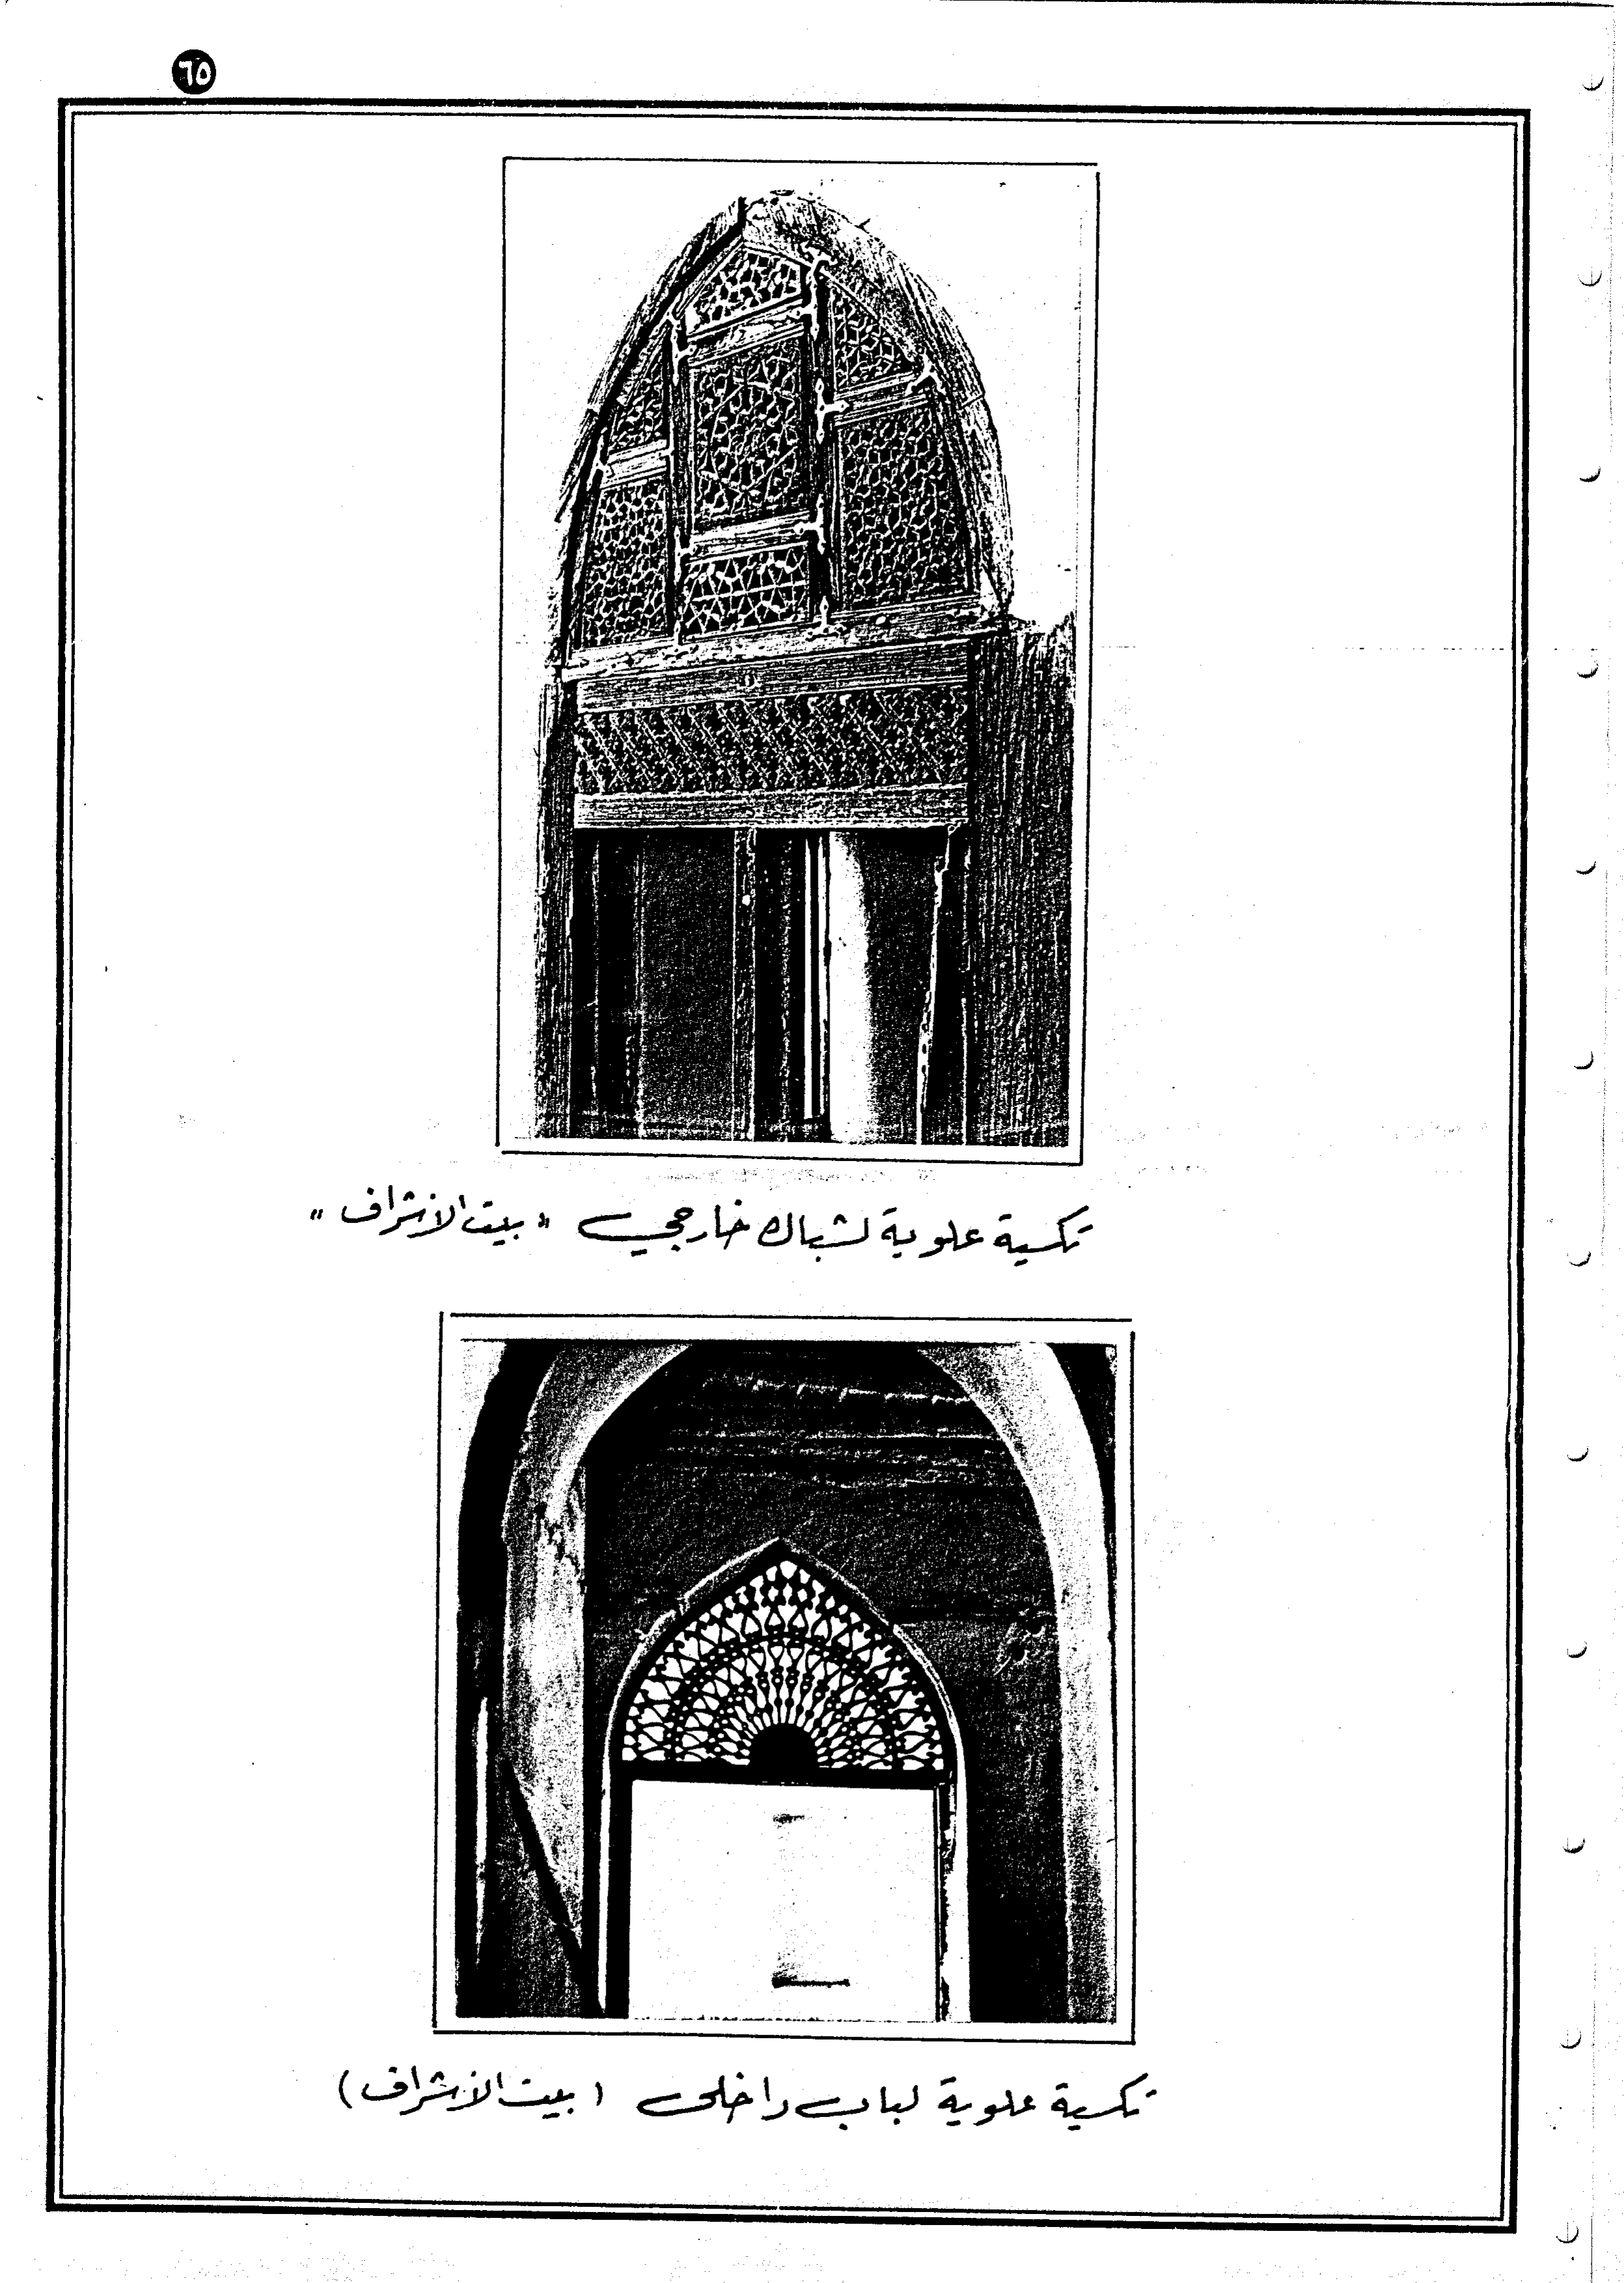 ٦٥
تكسية علوية لشباك خارجي "بيت الأشراف"
تكسية علوية لباب داخلى (بيت الأشراف)